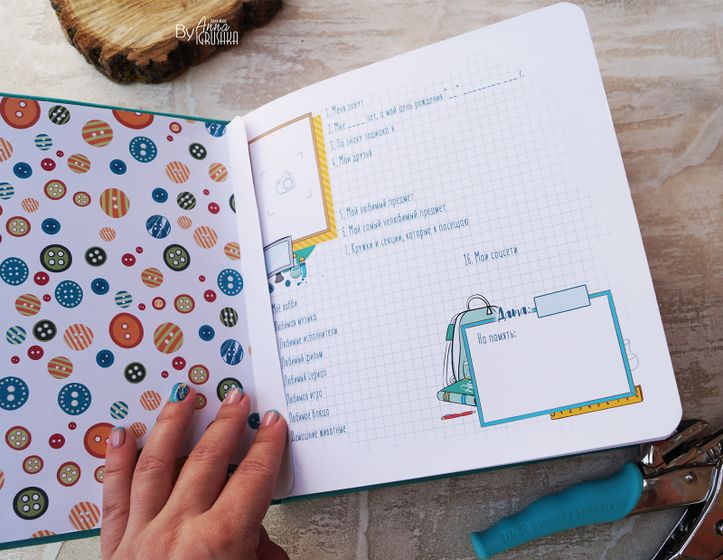 By Anna
IGRUSHKA
1. Меня зовут
2. Мне _____ лет, а мой день рождения "__" ____________ г.
3. По знаку зодиака я
4. Мои друзья
5. Мой любимый предмет
6. Мой самый нелюбимый предмет
7. Кружки и секции, которые я посещаю
16. Мои соцсети
Моё хобби
Любимая музыка
Любимые исполнители
Любимый фильм
Любимый сериал
Любимая игра
Любимые блюда
Домашние животные
Дата:
На память:
We R memory keepers